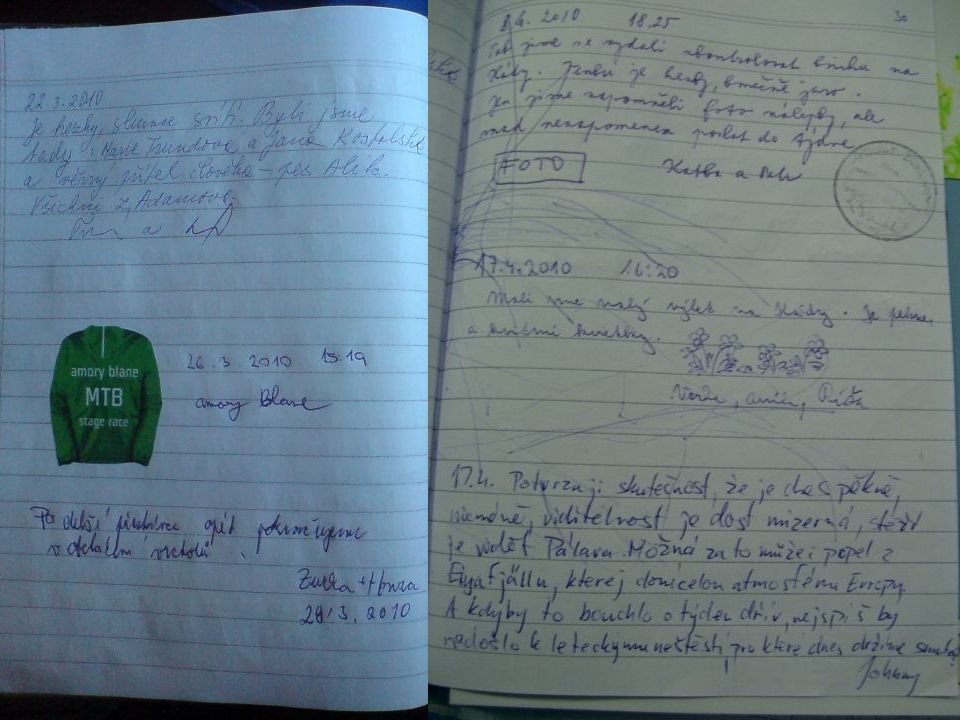 22.3.2010
Je hezky, slunce svítí. Byli jsme
tady: Marie a Jana
a věrný přítel člověka – pes Alík.
Všichni z Adamova.
a
amory blane
MTB
stage race
26.3.2010 15.19
amory Blane
Po delší přestávce opět pokračujeme
v vrcholů.
Zuzka + Honza
29.3.2010
8.4.2010 18.25
30
Tak jsme se vydali zkontrolovat na
Hády. Venku je hezky, konečně jaro.
Jen jsme nepomněli foto nálepky, ale
snad nezapomenem poslat do
FOTO
Katka a
17.4.2010 16:20
Mali sme malý výlet na Hády. Je pekne,
a kvietky.
17.4. Potvrzuji skutečnost, že je dnes pěkně,
nicméně, viditelnost je dost mizerná, stěží
je vidět Pálava. Možná za to může i popel z
Eyjafjällu, kterej doničelon atmosféru Evropy.
A kdyby to bouchlo o týden dřív, nejspíš by
nedošlo k leteckýmu neštěstí, pro které dnes držíme
Johnny